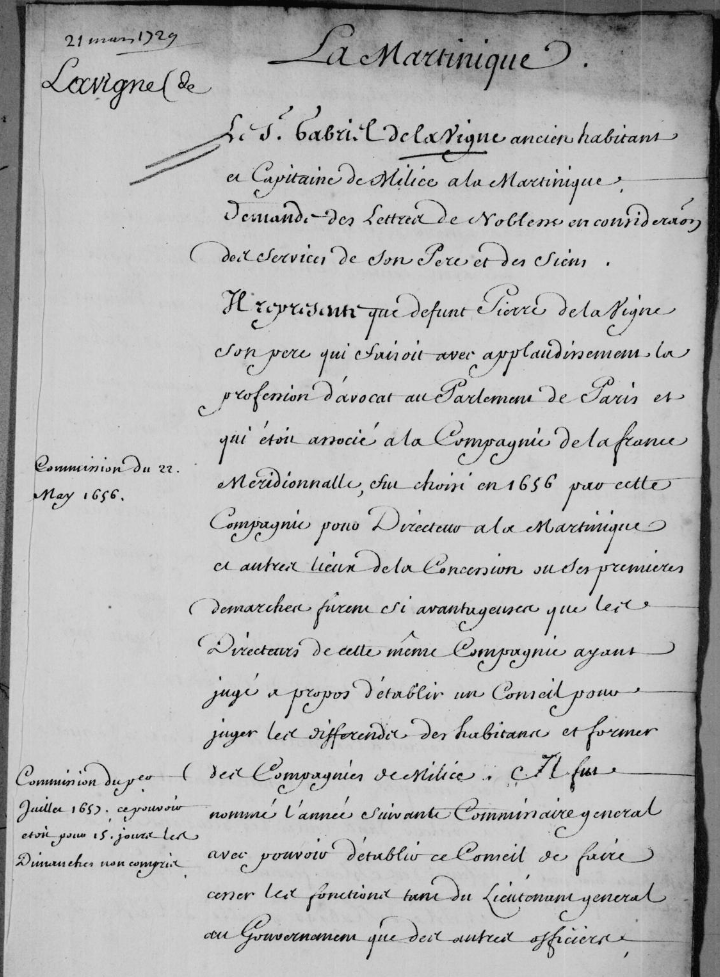 21 mars 1729
La Martinique.
Lavigne (de
Le Sr. Gabriel de la Vigne ancien habitant
et Capitaine de Milice a la Martinique,
Demande des Lettres de Noblesse en consideraõn
des Services de Son Pere et des Siens.
Il represente que defunt Pierre de la Vigne
Son pere qui faisoit avec applaudissement la
profession d'avocat au Parlement de Paris et
qui étoit associé a la Compagnie de la france
Commission du 22.
May 1656.
Meridionnalle, fut choisi en 1656 par cette
Compagnie pour Directeur a la Martinique
et autres lieux de la Concession ou Ses premieres
demarches fûrent Si avantageuses que les
Directeurs de cette même Compagnie ayant
jugé a propos d'établir un Conseil pour
juger les differends des habitans et former
Commission du per
Juillet 1657. ce pouvoir
étoit pour 15. jours les
Dimanches non compris
des Compagnies de Milice. Il fut
nommé l'année Suivante Commissaire general
avec pouvoir d'établir ce Conseil de faire
cesser les fonctions tant du Lieutenant general
au Gouvernement que des autres officiers,